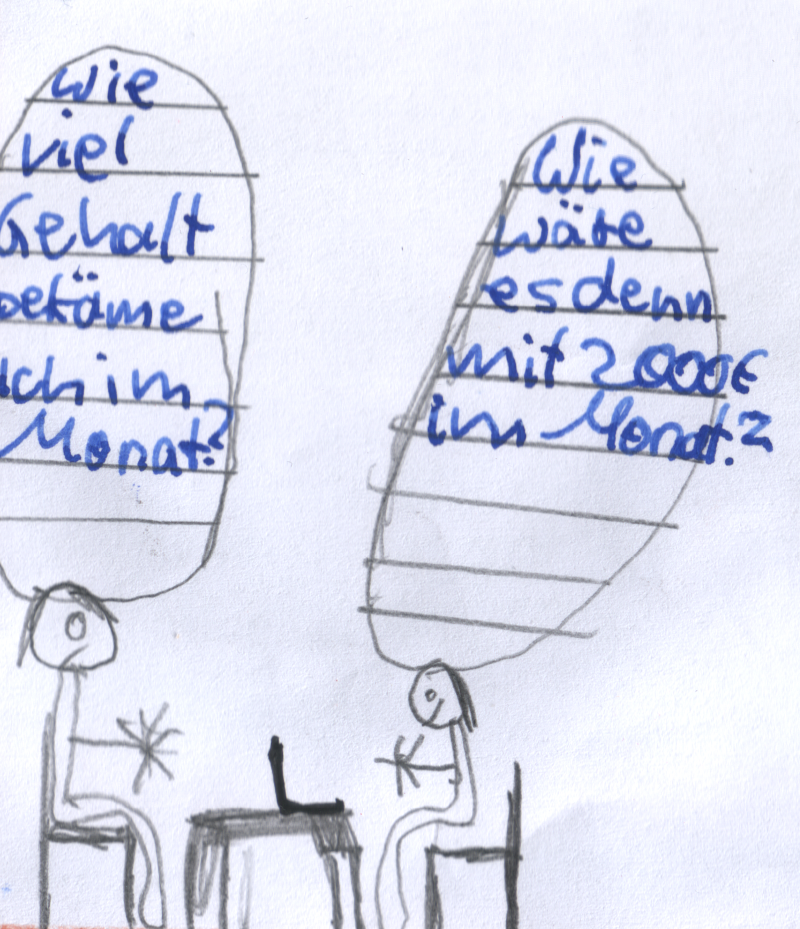 Wie
viel
Gehalt
bekäme
ich im
Monat?
Wie
wäre
es denn
mit 2000€
im Monat?